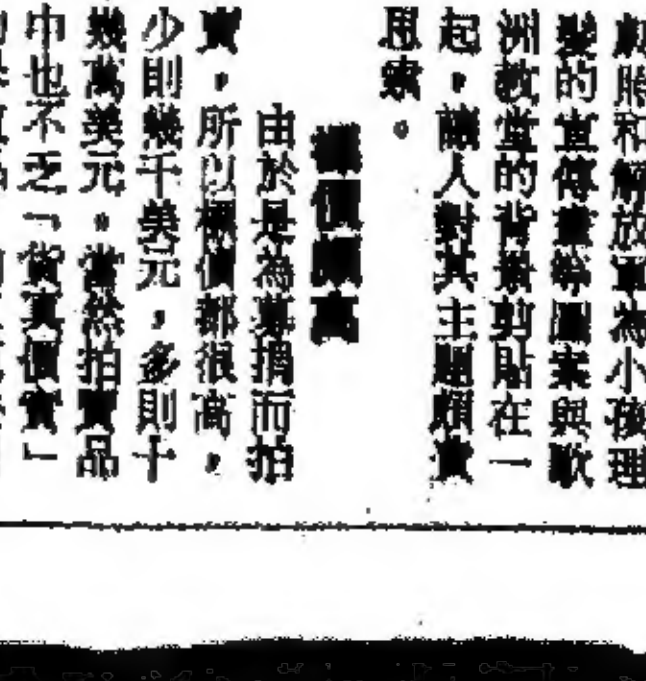 劇照和解放軍為小孩理
髮的宣傳畫等圖案與歐
洲教堂的背景剪貼在一
起，讓人對其主題頗費
思索。
標價頗高
由於是為募捐而拍
賣，所以標價都很高，
少則幾千美元，多則十
幾萬美元。當然拍賣品
中也不乏「貨真價實」